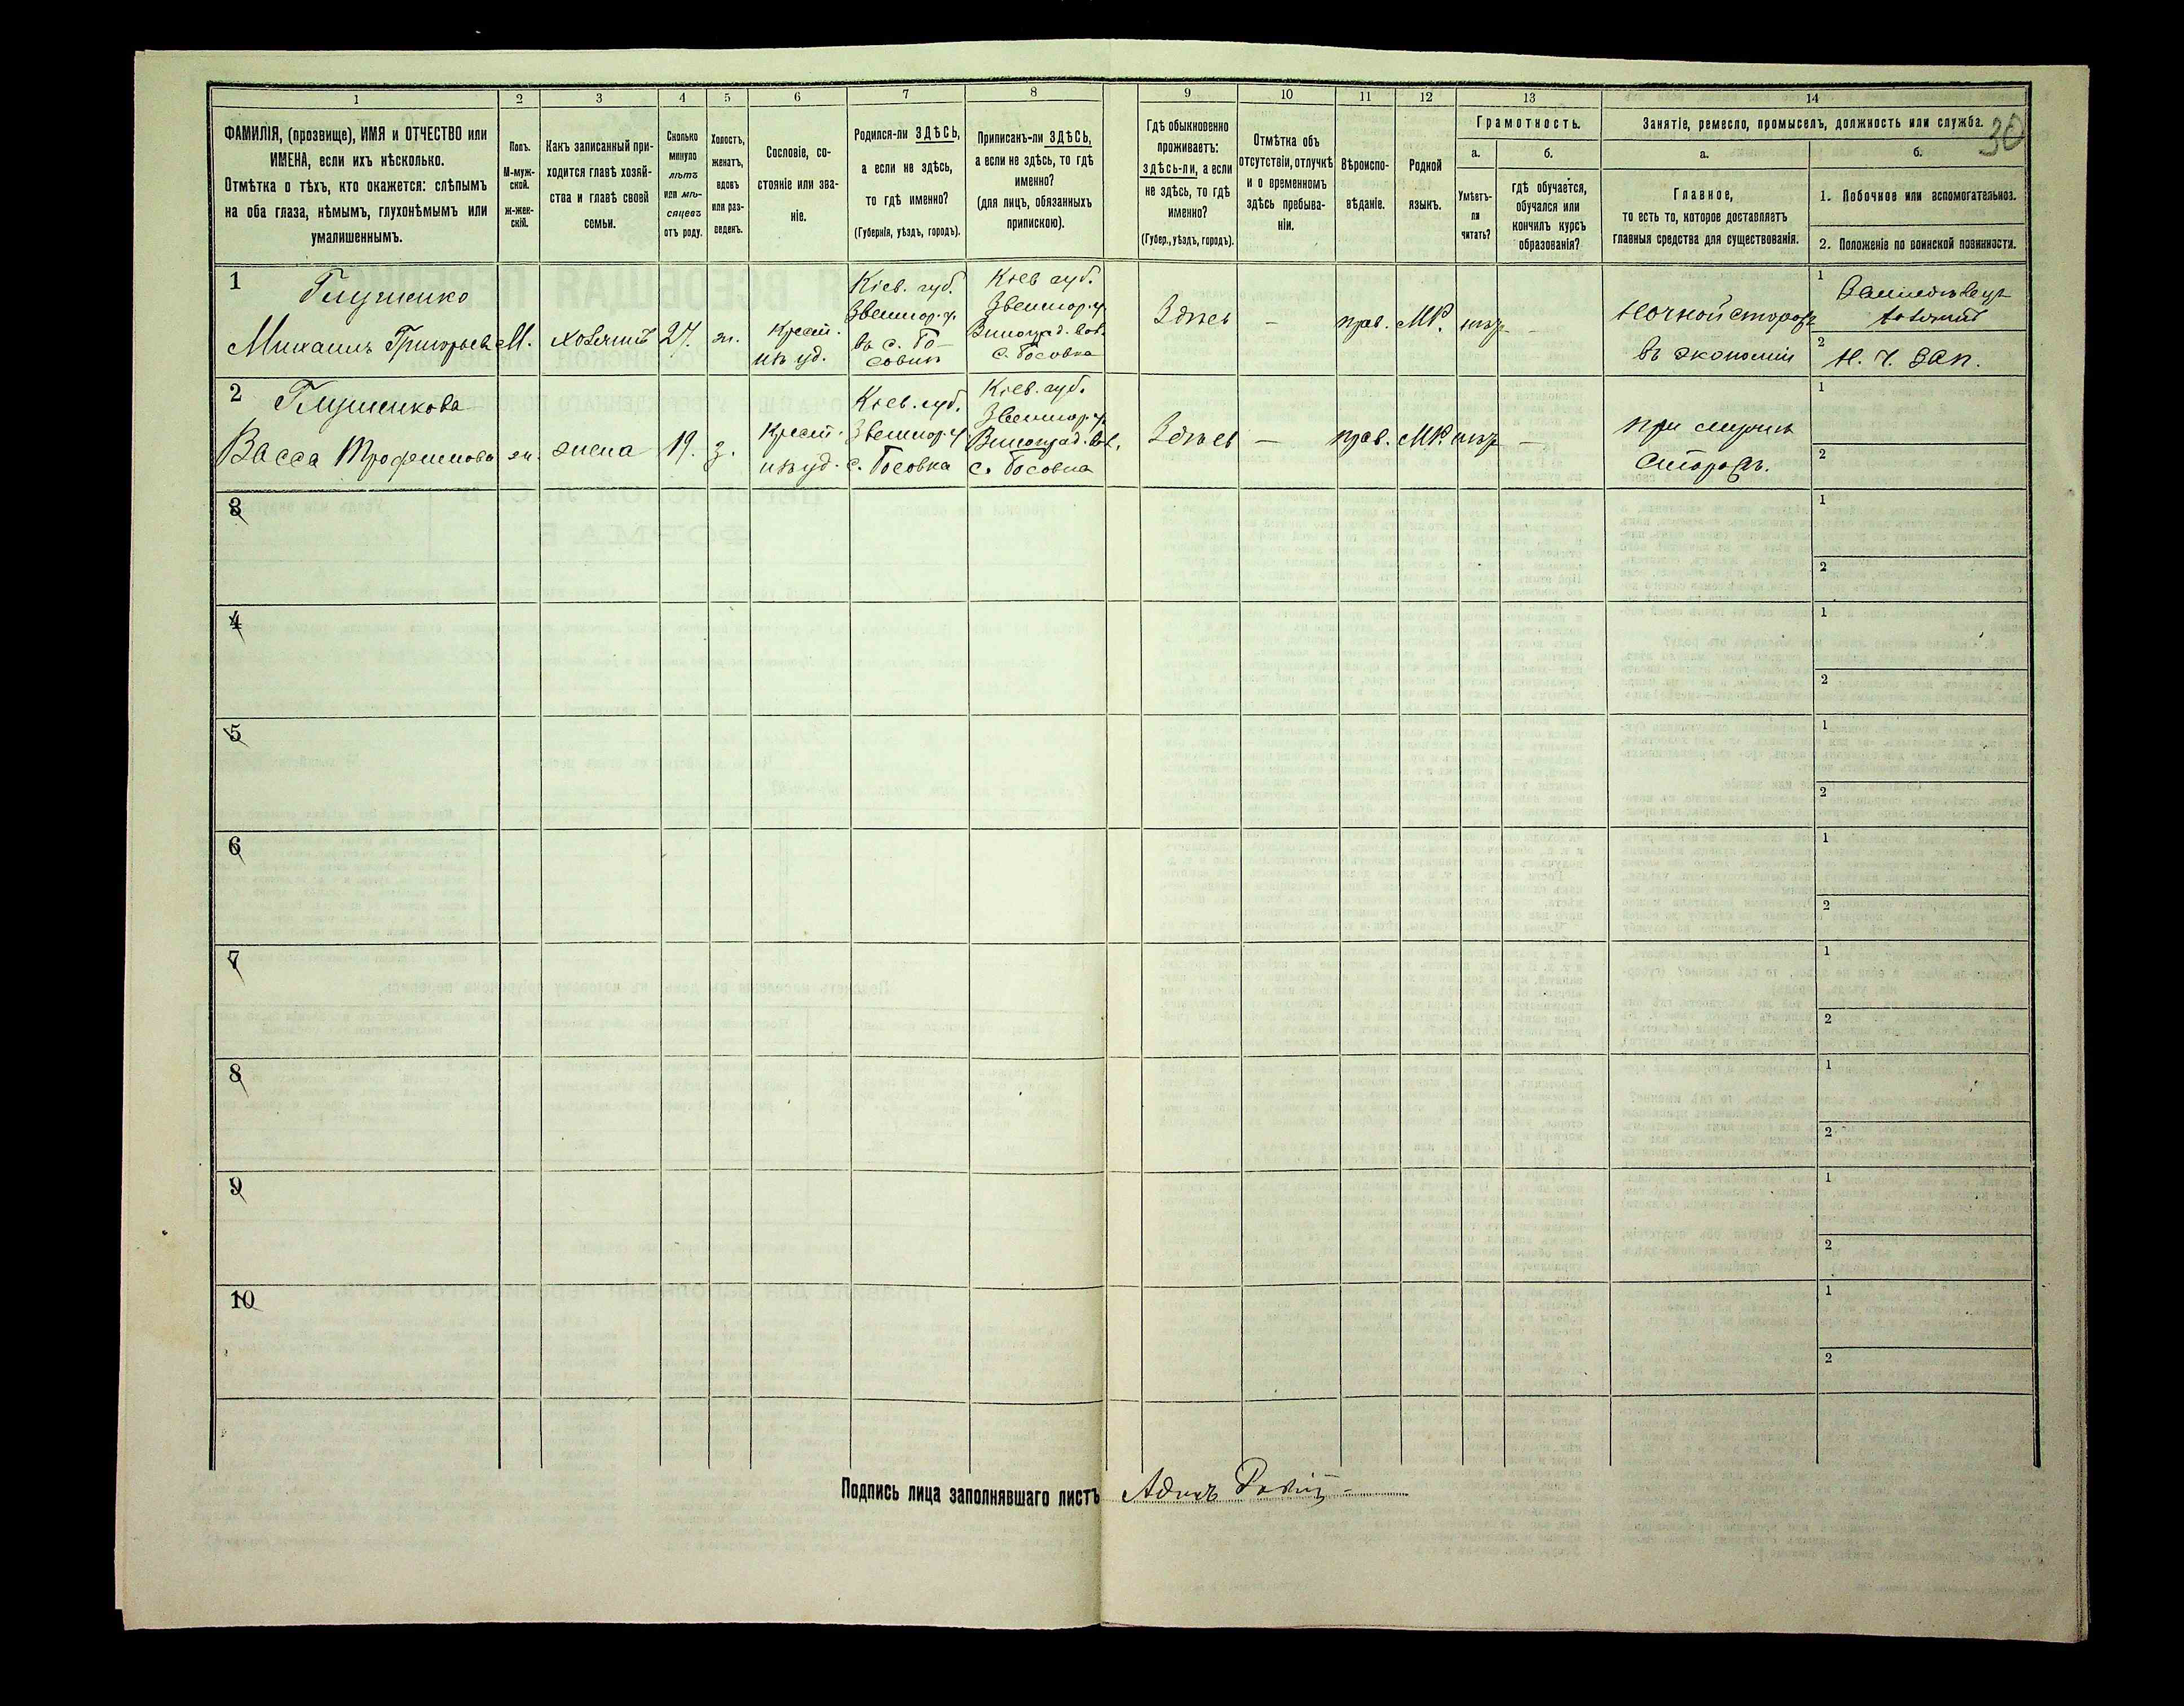 1 2 3 4 5 6 7 8 9 10 11 12 13 14
30
ФАМИЛІЯ, (прозвище), ИМЯ и ОТЧЕСТВО или
ИМЕНА, если ихъ нѣсколько.
Отмѣтка о тѣхъ, кто окажется: слѣпымъ
на оба глаза, нѣмымъ, глухонѣмымъ или
умалишеннымъ.
Полъ.
М-муж-
ской.
ж-жен-
скій.
Какъ записанный при-
ходится главѣ хозяй-
ства и главѣ своей
семьи.
Сколько
минуло
лѣтъ
или мѣ-
сяцевъ
отъ роду.
Холостъ,
женатъ,
вдовъ
или раз-
веденъ.
Сословіе, со-
стояніе или зва-
ніе.
Родился-ли ЗДѢСЬ,
а если не здѣсь,
то гдѣ именно?
(Губернія, уѣздъ, городъ).
Приписанъ-ли ЗДѢСЬ,
а если не здѣсь, то гдѣ
именно?
(для лицъ, обязанныхъ
припискою).
Гдѣ обыкновенно
проживаетъ:
здѣсь-ли, а если
не здѣсь, то гдѣ
именно?
(Губер., уѣздъ, городъ).
Отмѣтка объ
отсутствіи, отлучкѣ
и о временномъ
здѣсь пребыва-
ніи.
Вѣроиспо-
вѣданіе.
Родной
языкъ.
Грамотность.
а.
Умѣетъ-
ли
читать?
б.
гдѣ обучается,
обучался или
кончилъ курсъ
образованія?
Занятіе, ремесло, промыселъ, должность или служба.
а.
Главное,
то есть то, которое доставляетъ
главныя средства для существованія.
б.
1. Побочное или вспомогательное.
2. Положеніе по воинской повинности.
1
Глущенко
Михаилъ Григорьев
М.
хозяинъ
27.
ж.
Крест.
изъ уд.
Кіев. губ.
Звенигор. у.
въ с.
Кіев губ.
Звенигор. у
Виноград. вол.
с.
Здѣсь
—
прав.
МР.
—
Ночной сторожъ
въ экономіи
1
2
Н. Ч. зап.
2
Глущенкова
Васса Трофимова
ж.
жена
19.
з.
Крест.
изъ уд.
Кіев. губ.
Звенигор. у
с.
Кіев. губ.
Звенигор. у
Виноград. вол.
с.
Здѣсь
—
прав.
МР.
—
при мужѣ
сторожъ.
1
2
3
1
2
4
1
2
5
1
2
6
1
2
7
1
2
8
1
2
9
1
2
10
1
2
Подпись лица заполнявшаго листъ